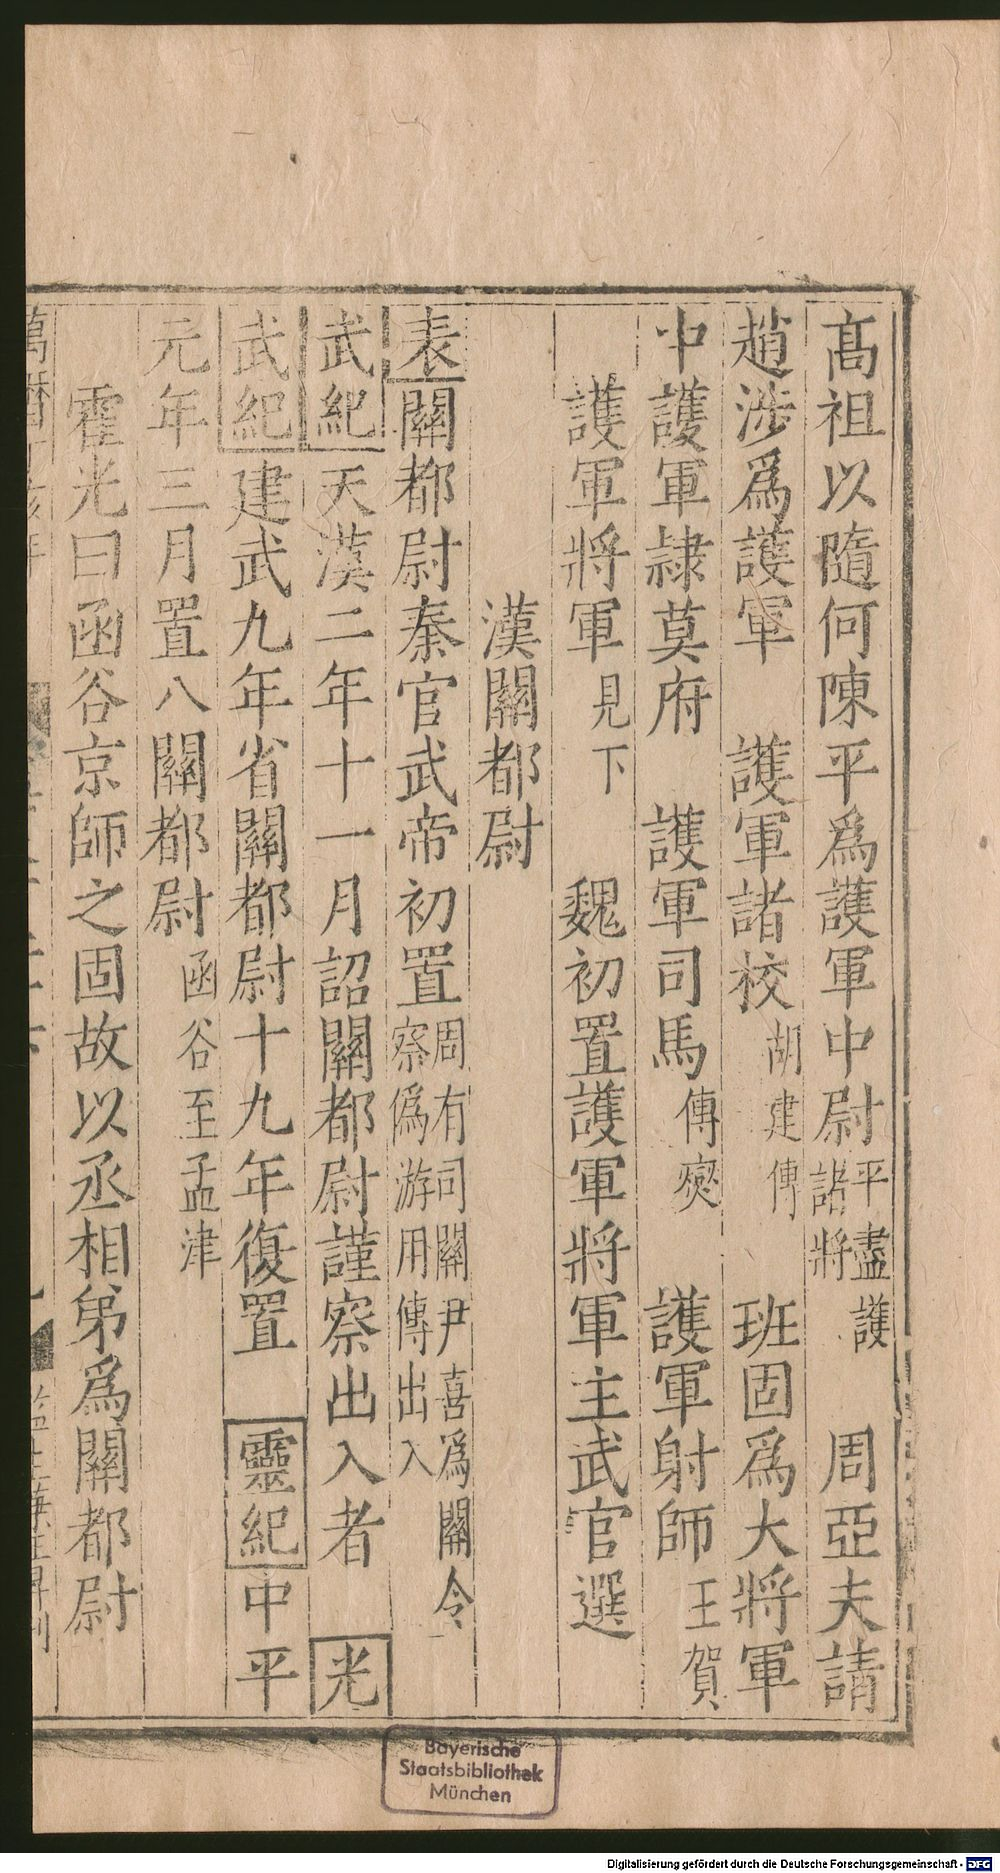 髙祖以隨何陳平爲護軍中尉平盡護諸將　周亞夫請
趙涉爲護軍　護軍諸校胡建傳　班固爲大將軍
中護軍隷莫府　護軍司馬傅爕　護軍射師王賀
護軍將軍見下　魏初置護軍將軍主武官選
漢關都尉
表關都尉秦官武帝初置周有司關尹喜爲關令察僞游用傳出入
武紀天漢二年十一月詔關都尉謹察出入者　光
武紀建武九年省關都尉十九年復置　靈紀中平
元年三月置八關都尉函谷至孟津
霍光曰函谷京師之固故以丞相弟爲關都尉
Bayerische
Staatsbibliothek
München
Digitalisierung gefördert durch die Deutsche Forschungsgemeinschaft - DFG